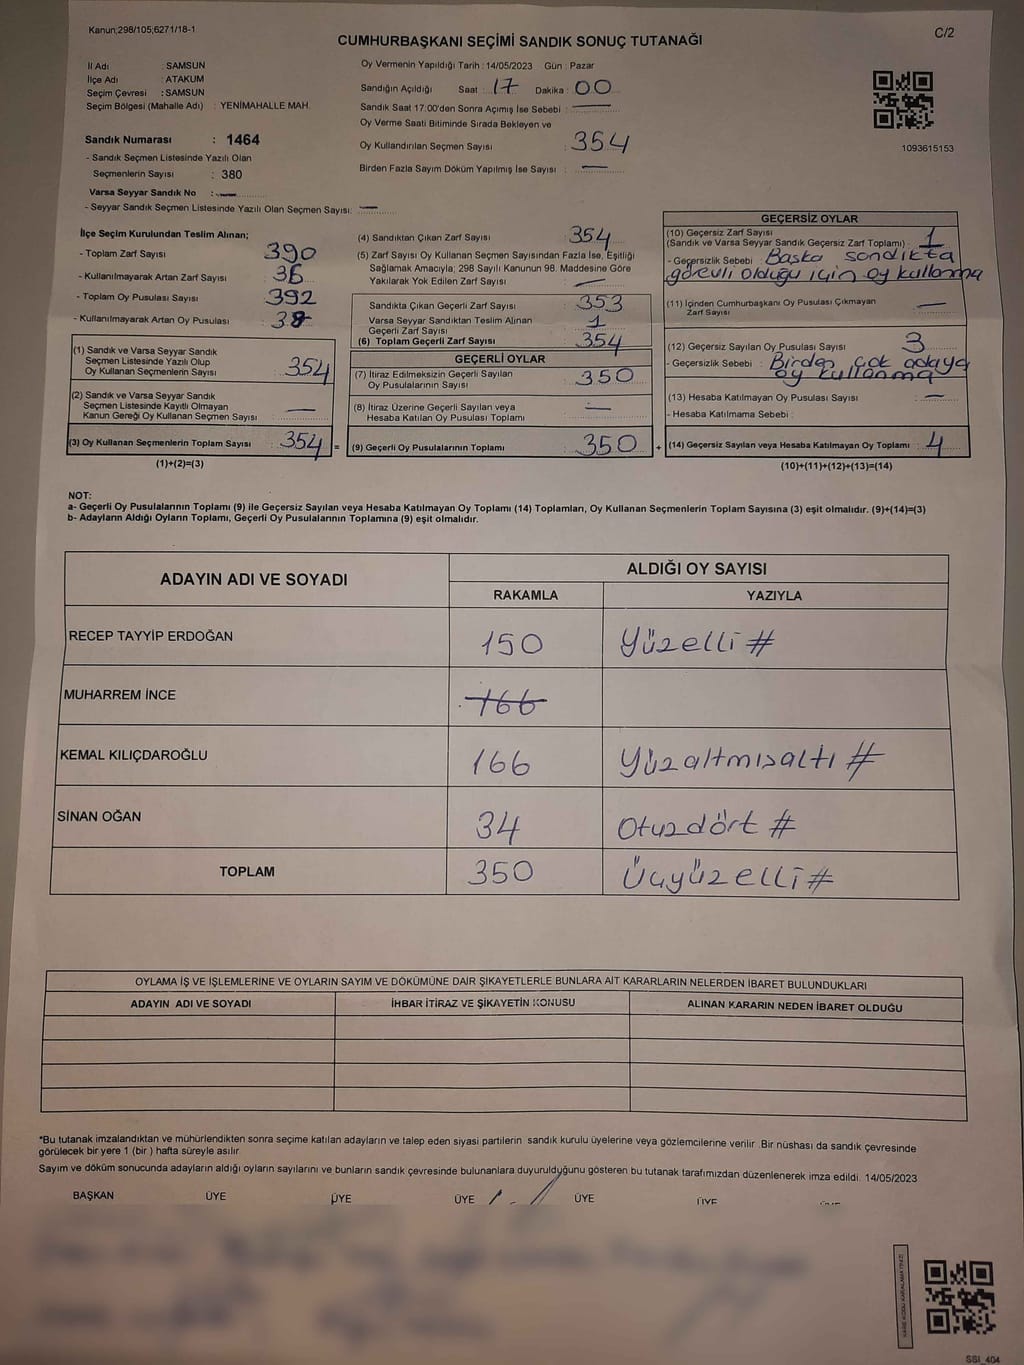 Kanun;298/105;6271/18-1
C/2
CUMHURBAŞKANI SEÇİMİ SANDIK SONUÇ TUTANAĞI
İl Adı : SAMSUN
İlçe Adı : ATAKUM
Seçim Çevresi : SAMSUN
Seçim Bölgesi (Mahalle Adı) : YENİMAHALLE MAH.
Sandık Numarası : 1464
- Sandık Seçmen Listesinde Yazılı Olan
Seçmenlerin Sayısı : 380
Varsa Seyyar Sandık No : —
- Seyyar Sandık Seçmen Listesinde Yazılı Olan Seçmen Sayısı: —
Oy Vermenin Yapıldığı Tarih : 14/05/2023 Gün : Pazar
Sandığın Açıldığı Saat : 17 Dakika : 00
Sandık Saat 17:00'den Sonra Açımış İse Sebebi : —
Oy Verme Saati Bitiminde Sırada Bekleyen ve
Oy Kullandırılan Seçmen Sayısı : 354
Birden Fazla Sayım Döküm Yapılmış İse Sayısı : —
1093615153
İlçe Seçim Kurulundan Teslim Alınan;
- Toplam Zarf Sayısı : 390
- Kullanılmayarak Artan Zarf Sayısı : 36
- Toplam Oy Pusulası Sayısı : 392
- Kullanılmayarak Artan Oy Pusulası : 38
(1) Sandık ve Varsa Seyyar Sandık
Seçmen Listesinde Yazılı Olup
Oy Kullanan Seçmenlerin Sayısı : 354
(2) Sandık ve Varsa Seyyar Sandık
Seçmen Listesinde Kayıtlı Olmayan
Kanun Gereği Oy Kullanan Seçmen Sayısı : —
(3) Oy Kullanan Seçmenlerin Toplam Sayısı : 354 =
(1)+(2)=(3)
(4) Sandıktan Çıkan Zarf Sayısı : 354
(5) Zarf Sayısı Oy Kullanan Seçmen Sayısından Fazla İse, Eşitliği
Sağlamak Amacıyla; 298 Sayılı Kanunun 98. Maddesine Göre
Yakılarak Yok Edilen Zarf Sayısı : —
Sandıkta Çıkan Geçerli Zarf Sayısı : 353
Varsa Seyyar Sandıktan Teslim Alınan
Geçerli Zarf Sayısı : 1
(6) Toplam Geçerli Zarf Sayısı : 354
GEÇERLİ OYLAR
(7) İtiraz Edilmeksizin Geçerli Sayılan
Oy Pusulalarının Sayısı : 350
(8) İtiraz Üzerine Geçerli Sayılan veya
Hesaba Katılan Oy Pusulası Toplamı : —
(9) Geçerli Oy Pusulalarının Toplamı : 350 +
GEÇERSİZ OYLAR
(10) Geçersiz Zarf Sayısı
(Sandık ve Varsa Seyyar Sandık Geçersiz Zarf Toplamı) : 1
- Geçersizlik Sebebi : Başka sandıkta
görevli olduğu için oy kullanma
(11) İçinden Cumhurbaşkanı Oy Pusulası Çıkmayan
Zarf Sayısı : —
(12) Geçersiz Sayılan Oy Pusulası Sayısı : 3
- Geçersizlik Sebebi : Birden çok adaya
oy kullanma
(13) Hesaba Katılmayan Oy Pusulası Sayısı : —
- Hesaba Katılmama Sebebi :
(14) Geçersiz Sayılan veya Hesaba Katılmayan Oy Toplamı : 4
(10)+(11)+(12)+(13)=(14)
NOT:
a- Geçerli Oy Pusulalarının Toplamı (9) ile Geçersiz Sayılan veya Hesaba Katılmayan Oy Toplamı (14) Toplamları, Oy Kullanan Seçmenlerin Toplam Sayısına (3) eşit olmalıdır. (9)+(14)=(3)
b- Adayların Aldığı Oyların Toplamı, Geçerli Oy Pusulalarının Toplamına (9) eşit olmalıdır.
ADAYIN ADI VE SOYADI
ALDIĞI OY SAYISI
RAKAMLA YAZIYLA
RECEP TAYYİP ERDOĞAN 150 Yüzelli #
MUHARREM İNCE 166
KEMAL KILIÇDAROĞLU 166 Yüzaltmışaltı #
SİNAN OĞAN 34 Otuzdört #
TOPLAM 350 Üçyüzelli #
OYLAMA İŞ VE İŞLEMLERİNE VE OYLARIN SAYIM VE DÖKÜMÜNE DAİR ŞİKAYETLERLE BUNLARA AİT KARARLARIN NELERDEN İBARET BULUNDUKLARI
ADAYIN ADI VE SOYADI İHBAR İTİRAZ VE ŞİKAYETİN KONUSU ALINAN KARARIN NEDEN İBARET OLDUĞU
*Bu tutanak imzalandıktan ve mühürlendikten sonra seçime katılan adayların ve talep eden siyasi partilerin sandık kurulu üyelerine veya gözlemcilerine verilir. Bir nüshası da sandık çevresinde
görülecek bir yere 1 (bir) hafta süreyle asılır.
Sayım ve döküm sonucunda adayların aldığı oyların sayılarını ve bunların sandık çevresinde bulunanlara duyurulduğunu gösteren bu tutanak tarafımızdan düzenlenerek imza edildi. 14/05/2023
BAŞKAN ÜYE ÜYE ÜYE ÜYE ÜYE
SSI_404